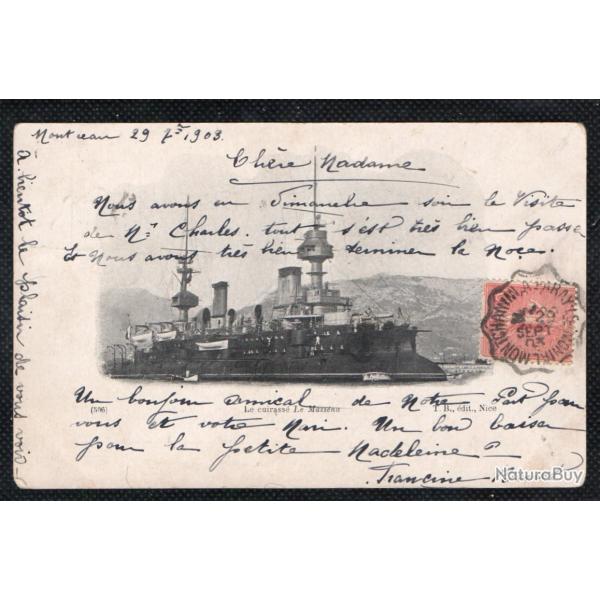 Montceau 29 7re 1903.
Chère Madame
Nous avons eu Dimanche soir la Visite
de Mr Charles. tout s'est très bien passé
Et Nous avons très bien terminer la Noce.
(506)
Le cuirassé Le Masséna
T. B., édit., Nice
Un bonjour amical de Notre Part pour
vous et votre Mari. Un bon baiser
pour la petite Madeleine
Francine
à bientot le plaisir de vous voir
29
SEPT
03
NaturaBuy